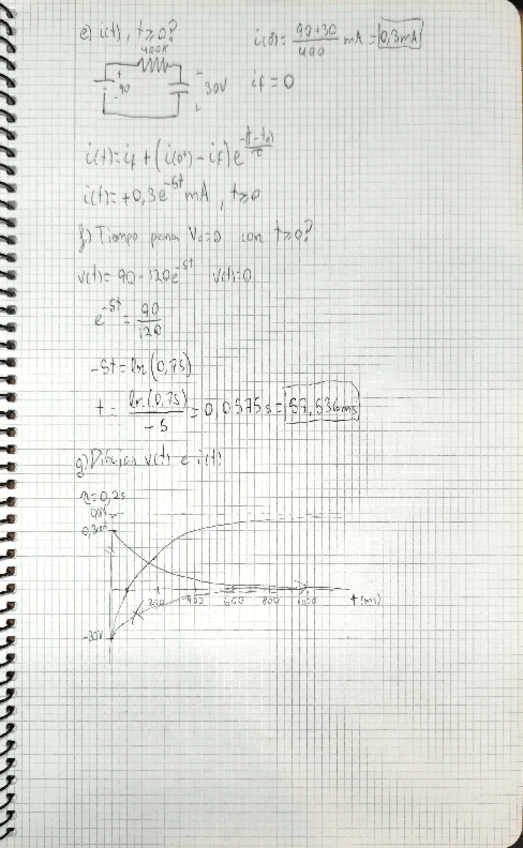 e) i(t), t≥0?
i(0⁺) = 90+30/400 mA = 0,3mA
400K
90
30V
if = 0
i(t) = if + (i(0⁺) - if) e^(-(t-t₀)/τ)
i(t) = +0,3e^(-5t) mA, t≥0
f) Tiempo para Vc=0 con t≥0?
v(t) = 90 - 120e^(-5t) v(t)=0
e^(-5t) = 90/120
-5t = ln(0,75)
t = ln(0,75)/-5 = 0,0575s = 57,536ms
g) Dibujar v(t) e i(t)
τ=0,2s
90V
0,3mA
200 400 600 800 1000 t(ms)
-30V